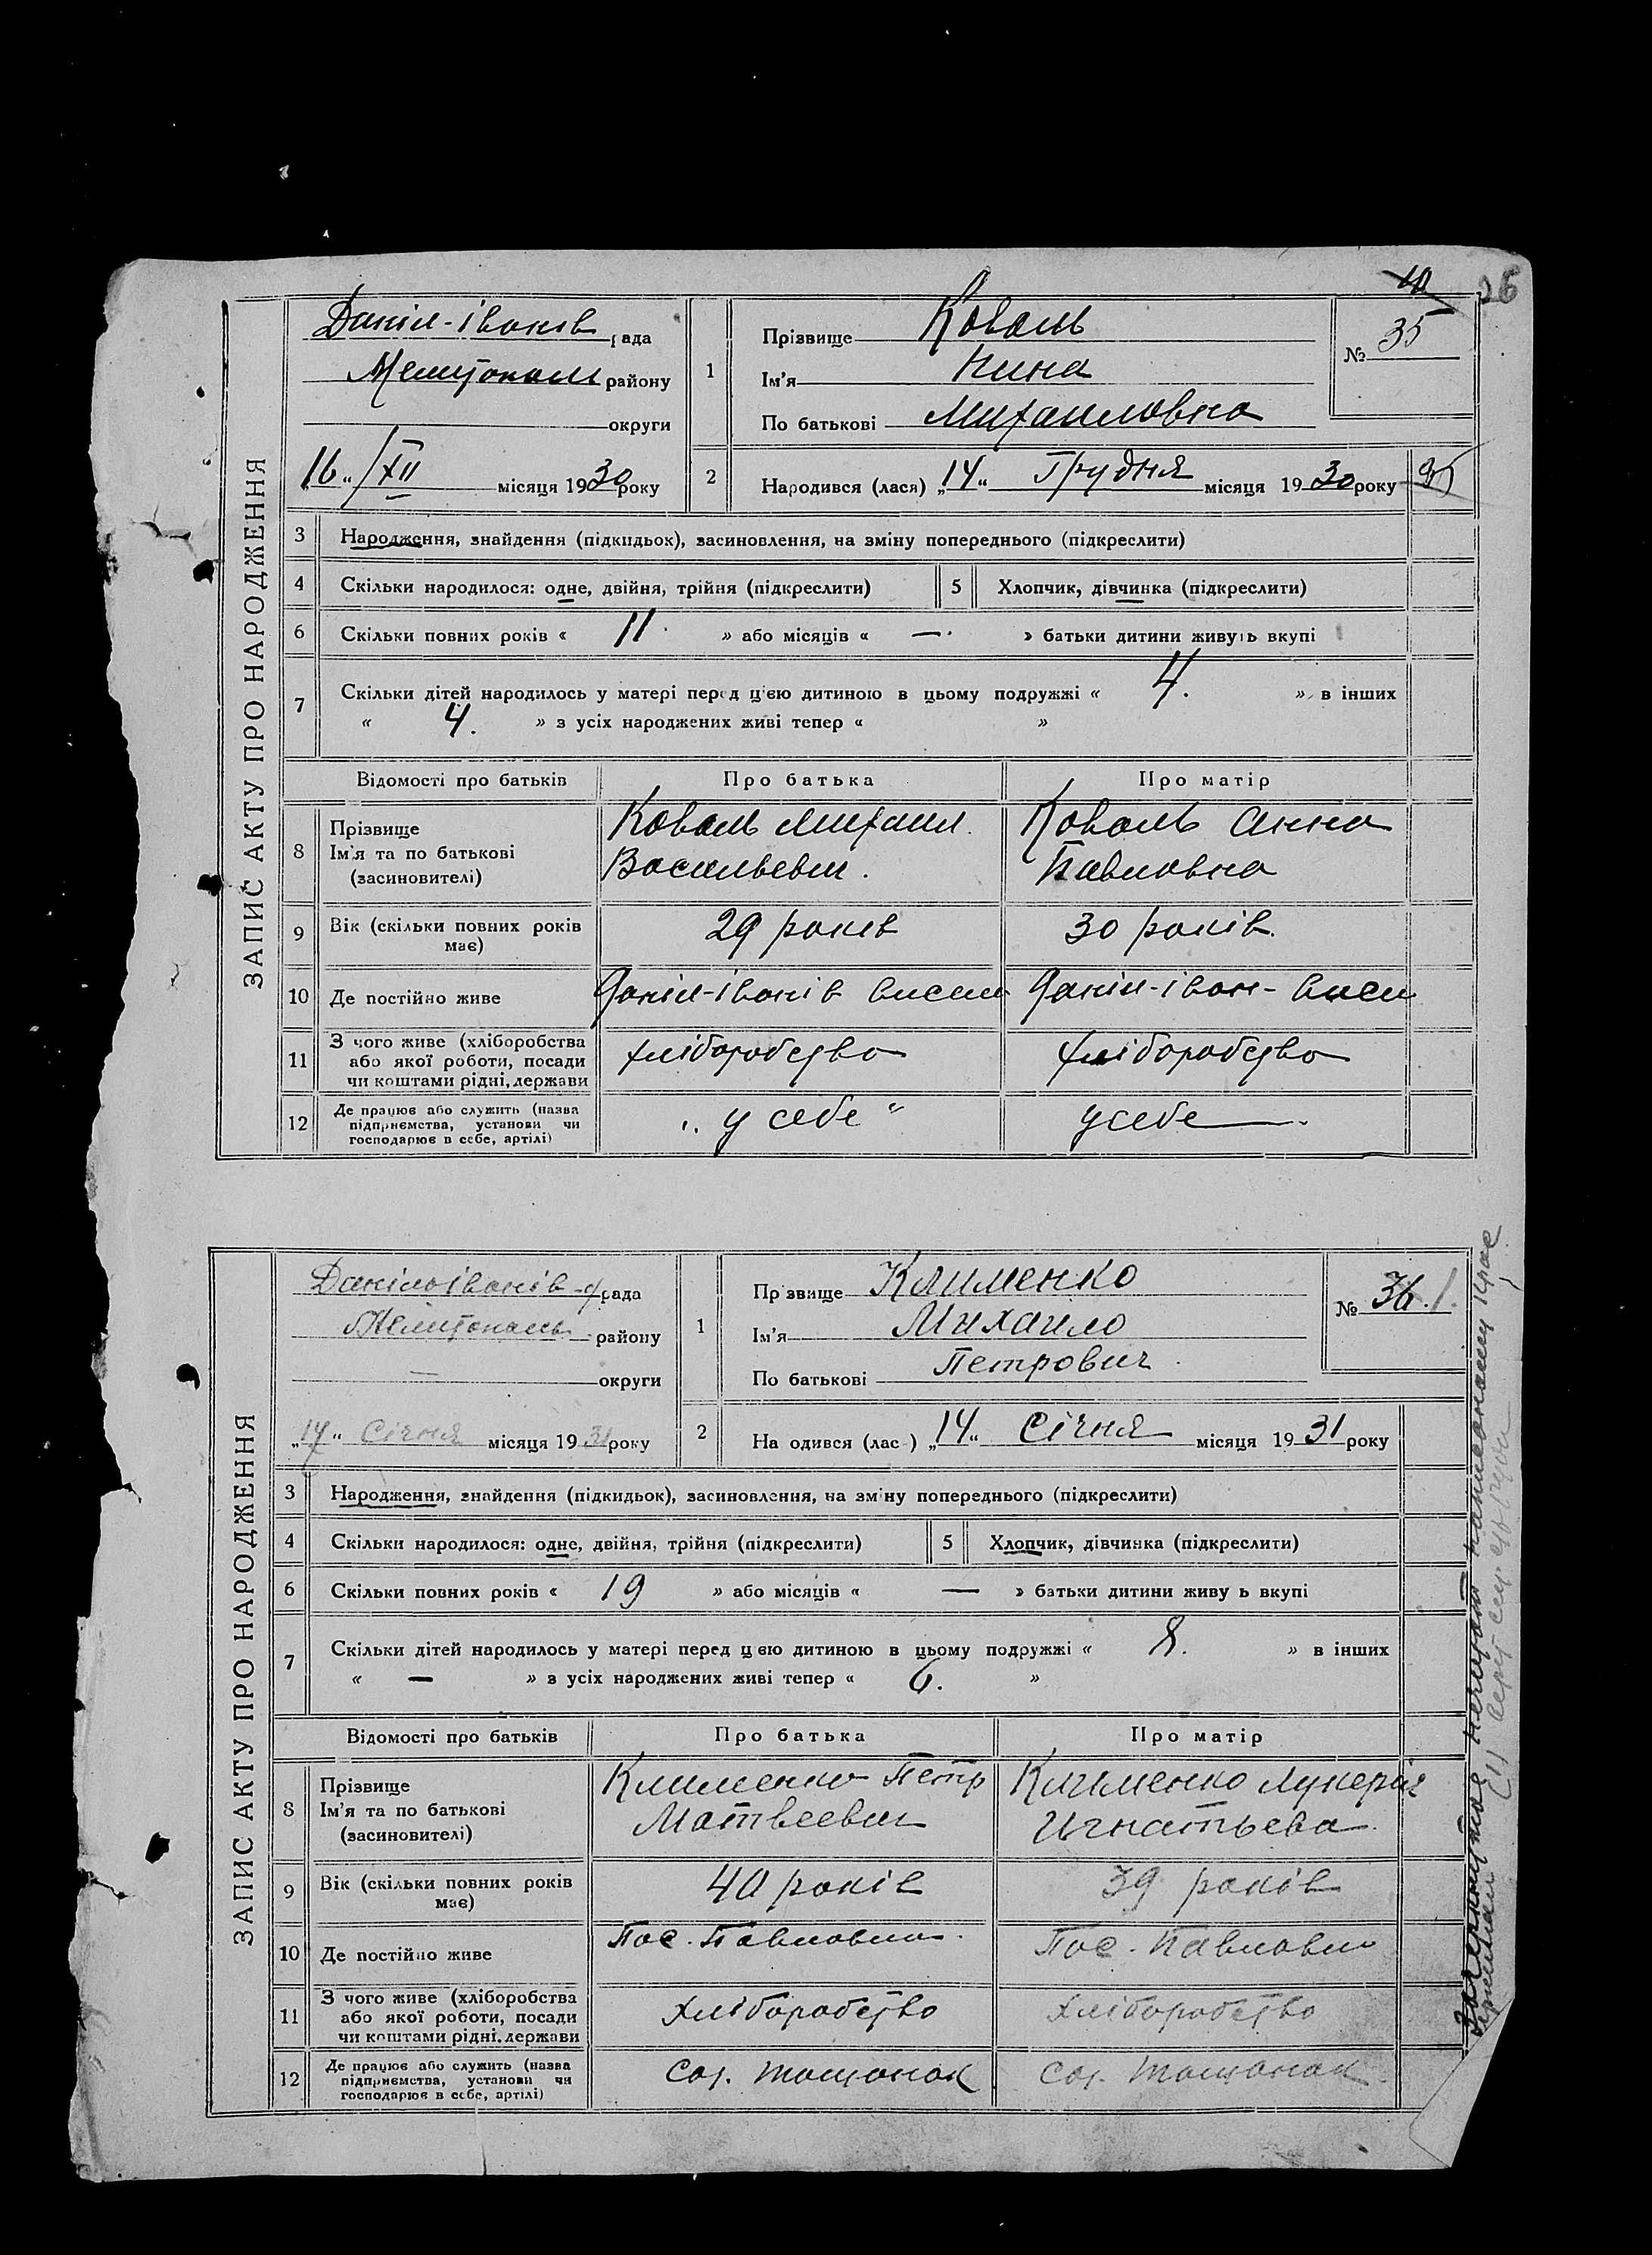 26
ЗАПИС АКТУ ПРО НАРОДЖЕННЯ
Даніл-Іванів рада
Мелитополь району
округи
„16“ /XII місяця 1930 року
1
Прізвище Коваль
Ім'я Нина
По батькові Михаиловна
№ 35
2
Народився (лася) „14“ Грудня місяця 1930 року
3 Народження, знайдення (підкидьок), засиновлення, на зміну попереднього (підкреслити)
4 Скільки народилося: одне, двійня, трійня (підкреслити) 5 Хлопчик, дівчинка (підкреслити)
6 Скільки повних років « 11 » або місяців « — » батьки дитини живуть вкупі
7 Скільки дітей народилось у матері перед цією дитиною в цьому подружжі « 4. » в інших
« 4. » з усіх народжених живі тепер « »
Відомості про батьків Про батька Про матір
8 Прізвище
Ім'я та по батькові
(засиновителі)
Коваль Михаил
Васильевич.
Коваль Анна
Павловна
9 Вік (скільки повних років
має)
29 років
30 років.
10 Де постійно живе Даніл-Іванів висел Даніл-Іван- висел
11 З чого живе (хліборобства
або якої роботи, посади
чи коштами рідні, держави
хліборобство
хліборобство
12 Де працює або служить (назва
підприємства, установи чи
господарює в себе, артілі)
„у себе“
у себе
ЗАПИС АКТУ ПРО НАРОДЖЕННЯ
Данілоіванів рада
Мелитополь району
— округи
„14“ Січня місяця 1931 року
1
Прізвище Клименко
Ім'я Михаило
По батькові Петрович
№ 36. 1
2
На одився (лас ) „14“ Січня місяця 1931 року
3 Народження, знайдення (підкидьок), засиновлення, на зміну попереднього (підкреслити)
4 Скільки народилося: одне, двійня, трійня (підкреслити) 5 Хлопчик, дівчинка (підкреслити)
6 Скільки повних років « 19 » або місяців « — » батьки дитини живу ь вкупі
7 Скільки дітей народилось у матері перед цією дитиною в цьому подружжі « 8. » в інших
« — » з усіх народжених живі тепер « 6. »
Відомості про батьків Про батька Про матір
8 Прізвище
Ім'я та по батькові
(засиновителі)
Клименко Петр
Матвеевич
Клименко Лукерия
Игнатьева
9 Вік (скільки повних років
має)
40 років
39 років
10 Де постійно живе Пос. Павловка Пос. Павловка
11 З чого живе (хліборобства
або якої роботи, посади
чи коштами рідні, держави
хліборобство
хліборобство
12 Де працює або служить (назва
підприємства, установи чи
господарює в себе, артілі)